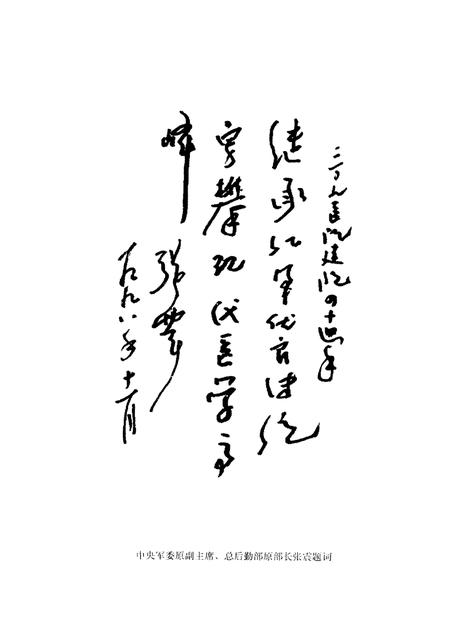 三〇九医院建院四十周年
继承红军优良传统
勇攀现代医学高
峰 张震
一九九八年十一月
中央军委原副主席、总后勤部原部长张震题词